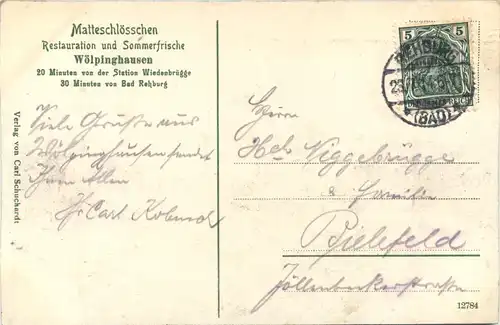 Matteschlösschen
Restauration und Sommerfrische
Wölpinghausen
20 Minuten von der Station Wiedenbrügge
30 Minuten von Bad Rehburg
Verlag von Carl Schuchardt
Viele Grüße aus
Wölpinghausen sendet
Ihnen Allen
Carl
5 5
REHBURG
(BAD)
Herrn
Niggebrügge
& Familie
Bielefeld
Jöllenbeckerstraße
12784